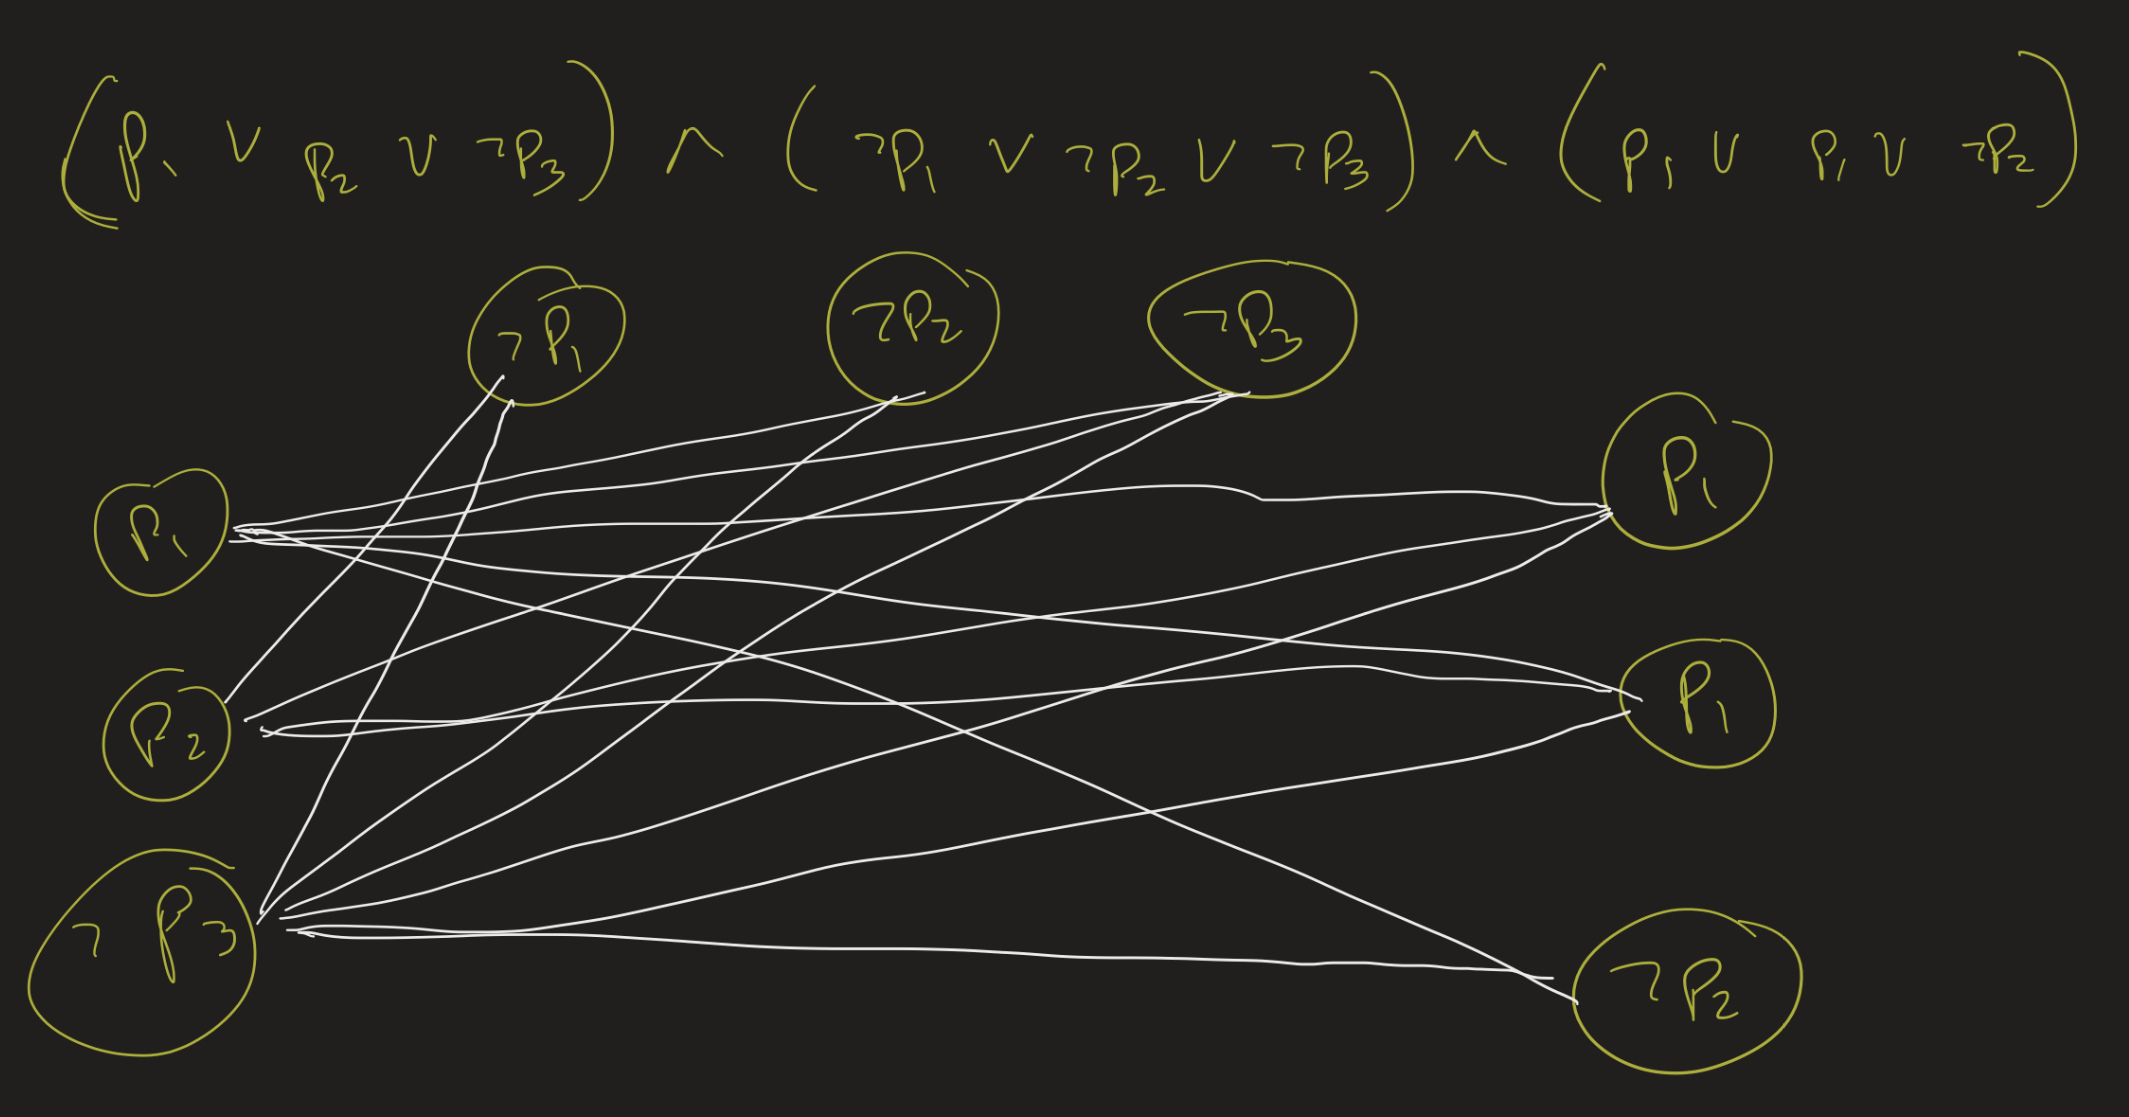 (P₁ ∨ P₂ ∨ ¬P₃) ∧ (¬P₁ ∨ ¬P₂ ∨ ¬P₃) ∧ (P₁ ∨ P₁ ∨ ¬P₂)
¬P₁ ¬P₂ ¬P₃
P₁
P₁
P₁
P₂
¬P₃
¬P₂